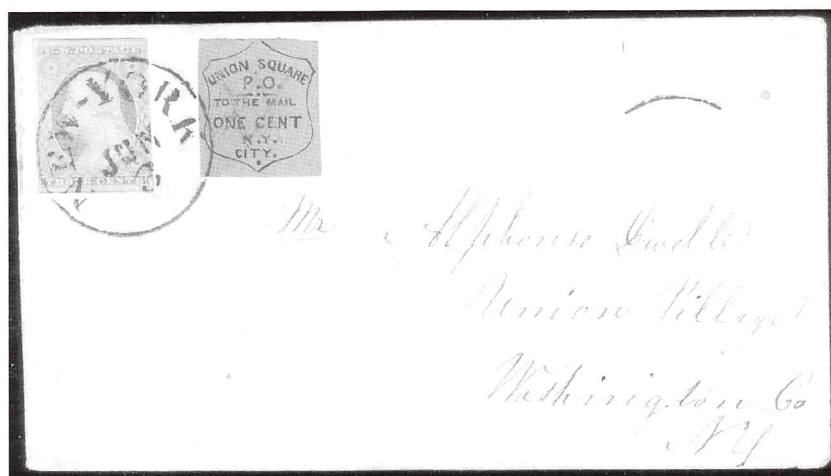 U.S. POSTAGE
THREE CENTS
NEW-YORK
JUN
UNION SQUARE
P.O.
TO THE MAIL
ONE CENT
N.Y.
CITY.
Mr Alphonso
Union Village
Washington Co
NY